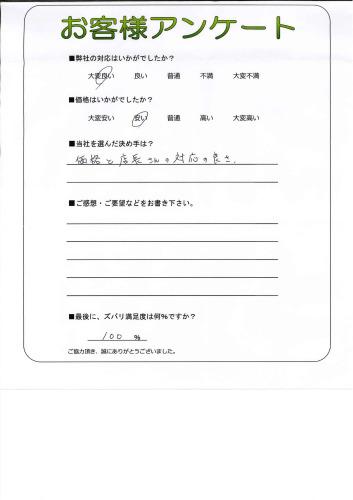 お客様アンケート
■弊社の対応はいかがでしたか？
大変良い 良い 普通 不満 大変不満
■価格はいかがでしたか？
大変安い 安い 普通 高い 大変高い
■当社を選んだ決め手は？
価格と店長さんの対応の良さ.
■ご感想・ご要望などをお書き下さい。
■最後に、ズバリ満足度は何％ですか？
100 %
ご協力頂き、誠にありがとうございました。